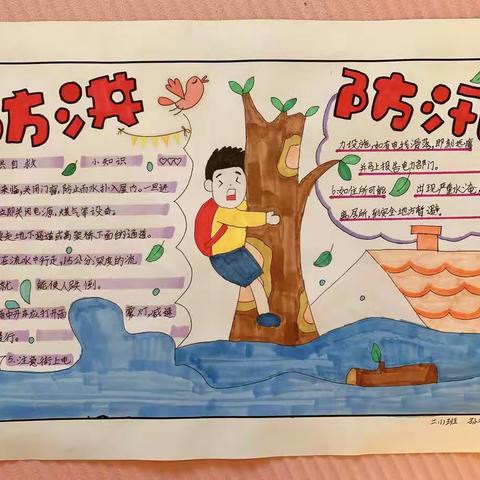 防洪
防汛
自救 小知识
来临,关闭门窗,防止雨水扑入屋内。一旦进
立即关闭电源,煤气等设备。
要走地下通道或高架桥下面的通道。
在流水中行走,15公分深度的流
就 能使人跌倒。
雨中开车应打开雾灯,减速
慢行。
5.注意街上电
力设施,如有电线滑落,即刻远离
并马上报告电力部门。
6.如住所可能出现严重水淹,
离居所,到安全地方暂避。